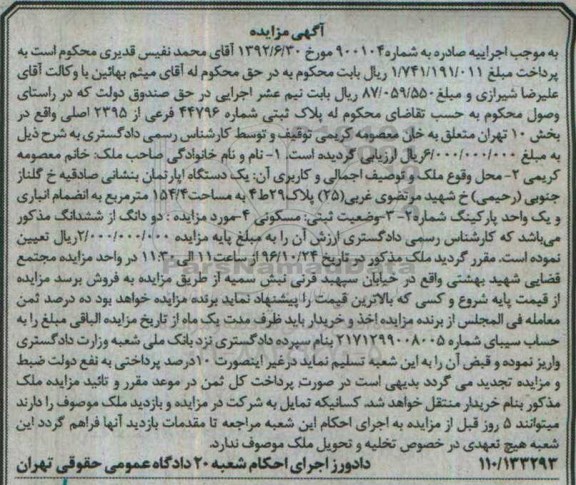 آگهی مزایده
به موجب اجراییه صادره به شماره ۹۰۰۱۰۴ مورخ ۱۳۹۲/۶/۳۰ آقای محمد نفیس قدیری محکوم است به
پرداخت مبلغ ۱/۷۴۱/۱۹۱/۰۱۱ ریال بابت محکوم به در حق محکوم له آقای میثم بهائین با وکالت آقای
علیرضا شیرازی و مبلغ ۸۷/۰۵۹/۵۵۰ ریال بابت نیم عشر اجرایی در حق صندوق دولت که در راستای
وصول محکوم به حسب تقاضای محکوم له پلاک ثبتی شماره ۴۴۷۹۶ فرعی از ۲۳۹۵ اصلی واقع در
بخش ۱۰ تهران متعلق به خان معصومه کریمی توقیف و توسط کارشناس رسمی دادگستری به شرح ذیل
به مبلغ ۶/۰۰۰/۰۰۰/۰۰۰ ریال ارزیابی گردیده است. ۱- نام و نام خانوادگی صاحب ملک: خانم معصومه
کریمی ۲- محل وقوع ملک و توصیف اجمالی و کاربری آن: یک دستگاه اپارتمان بنشانی صادقیه خ گلناز
جنوبی (رحیمی) خ شهید مرتضوی غربی(۲۵) پلاک۲۹ط۴ به مساحت۱۵۴/۴ مترمربع به انضمام انباری
و یک واحد پارکینگ شماره۲- ۳-وضعیت ثبتی: مسکونی ۴-مورد مزایده : دو دانگ از ششدانگ مذکور
می‌باشد که کارشناس رسمی دادگستری ارزش آن را به مبلغ پایه مزایده ۲/۰۰۰/۰۰۰/۰۰۰ریال تعیین
نموده است. مقرر گردید ملک مذکور در تاریخ ۹۶/۱۰/۲۴ از ساعت۱۱ الی ۱۱:۳۰ در واحد مزایده مجتمع
قضایی شهید بهشتی واقع در خیابان سپهبد قرنی نبش سمیه از طریق مزایده به فروش برسد مزایده
از قیمت پایه شروع و کسی که بالاترین قیمت را پیشنهاد نماید برنده مزایده خواهد بود ده درصد ثمن
معامله فی المجلس از برنده مزایده اخذ و خریدار باید ظرف مدت یک ماه از تاریخ مزایده الباقی مبلغ را به
حساب سیبای شماره ۲۱۷۱۲۹۹۰۰۸۰۰۵ بنام سپرده دادگستری نزد بانک ملی شعبه وزارت دادگستری
واریز نموده و قبض آن را به این شعبه تسلیم نماید درغیر اینصورت ۱۰درصد پرداختی به نفع دولت ضبط
و مزایده تجدید می گردد بدیهی است در صورت پرداخت کل ثمن در موعد مقرر و تائید مزایده ملک
مذکور بنام خریدار منتقل خواهد شد. کسانیکه تمایل به شرکت در مزایده و بازدید ملک موصوف را دارند
میتوانند ۵ روز قبل از مزایده به اجرای احکام این شعبه مراجعه تا مقدمات بازدید آنها فراهم گردد این
شعبه هیچ تعهدی در خصوص تخلیه و تحویل ملک موصوف ندارد.
۱۱۰/۱۳۳۲۹۳ دادورز اجرای احکام شعبه ۲۰ دادگاه عمومی حقوقی تهران